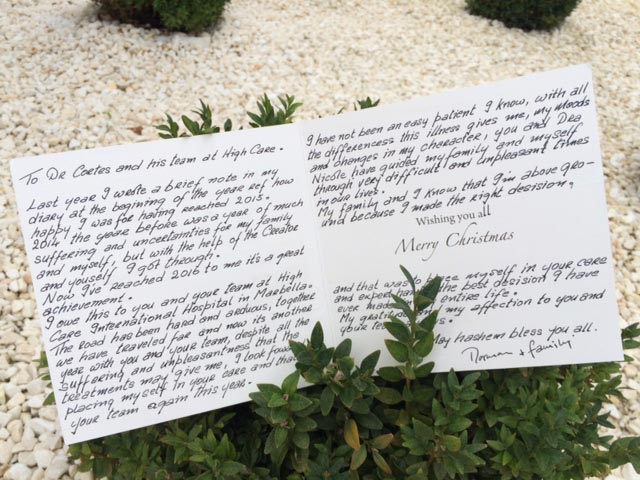 To Dr Cortes and his team at High Care.
Last year I wrote a brief note in my
diary at the begining of the year ref how
happy I was for having reached 2015.
2014 the year before was a year of much
suffering and uncertainties for my family
and myself, but with the help of the Creator
and youself I got through.
Now I've reached 2016 to me it's a great
achievement.
I owe this to you and your team at High
Care International Hospital in Marbella.
The road has been hard and arduous, together
we have traveled far and now its another
year with you and your team, despite all the
suffering and unpleasantness that the
treatments may give me. I look foward
placing myself in your care and that
your team again this year.
I have not been an easy patient I know, with all
the differencess this illness gives me, my moods
and changes in my character, you and Dra
Nicole have guided my family and myself
through very difficult and unpleasant times
in our lives.
My family and I know that I'm above gro-
und because I made the right decision,
Wishing you all
Merry Christmas
and that was to place myself in your care
and expert hands the best decision I have
ever made entire life.
My gratitude my affection to you and
your
May hashem bless you all.
& family